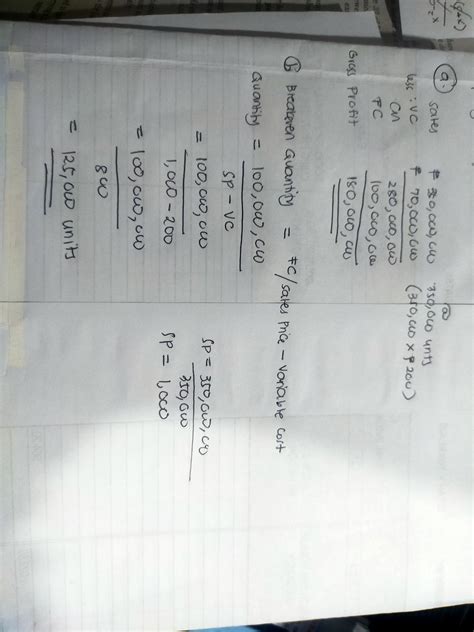 a. Sales ₱ 350,000,000 @ 350,000 units
less: VC ₱ 70,000,000 (350,000 x ₱200)
CM 280,000,000
FC 100,000,000
Gross Profit 180,000,000
b Breakeven Quantity = FC/Sales Price - Variable Cost
Quantity = 100,000,000
SP - VC
= 100,000,000
1,000 - 200
= 100,000,000
800
= 125,000 units
SP = 350,000,000
350,000
SP = 1,000